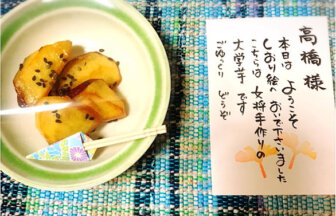 高橋様
本日は ようこそ
しおり絵の おいで下さいました
こちらは 女将手作りの
大学芋 です
ごゆっくり どうぞ